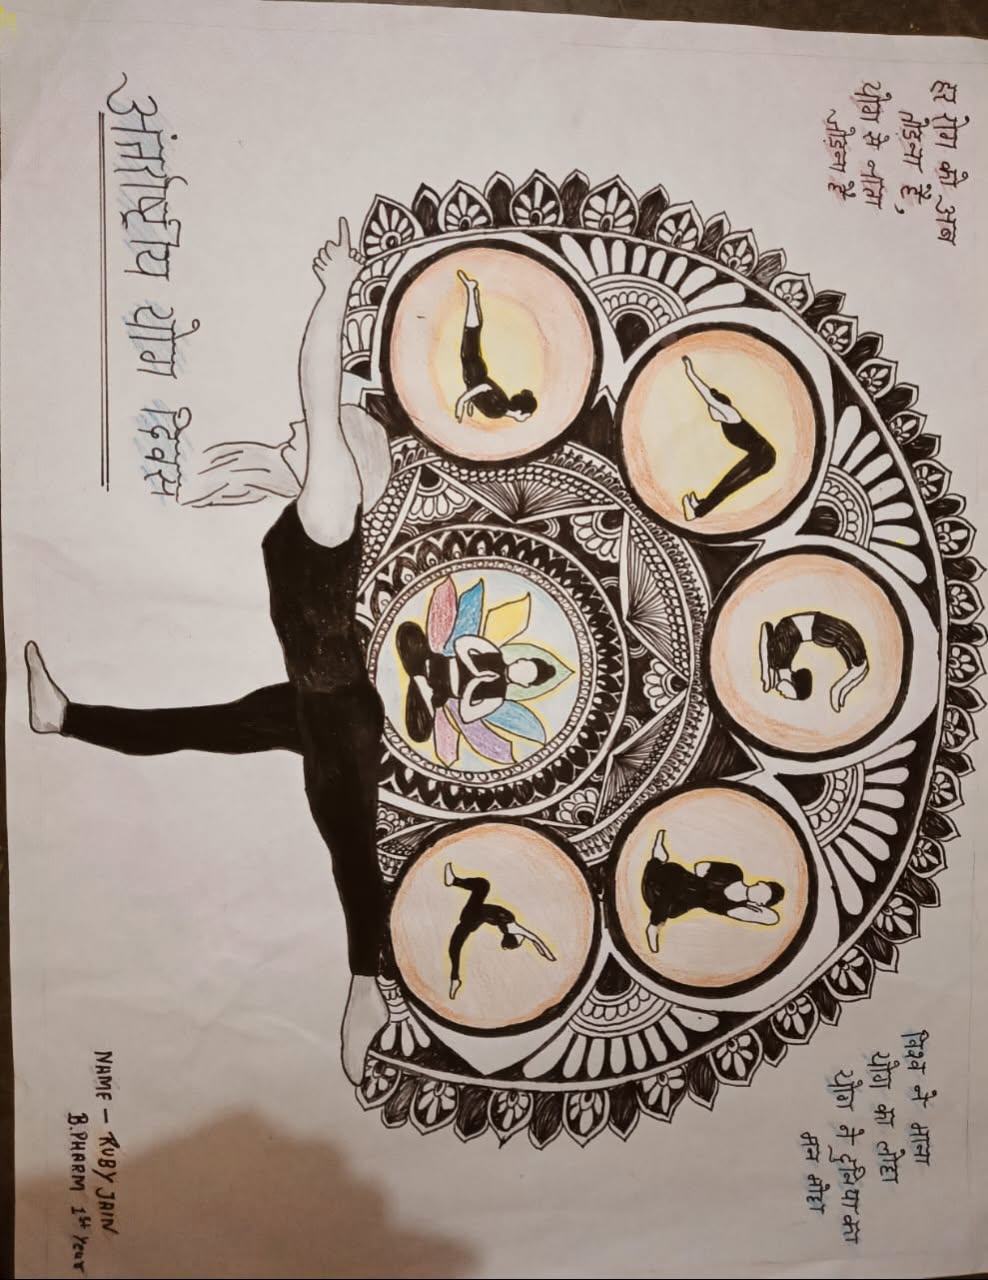 हर रोग को अब
तोड़ना है,
योग से नाता
जोड़ना है
विश्व ने माना
योग का लोहा
योग ने दुनिया का
मन मोहा
अंतर्राष्ट्रीय योग दिवस
NAME - RUBY JAIN
B.PHARM 1st Year